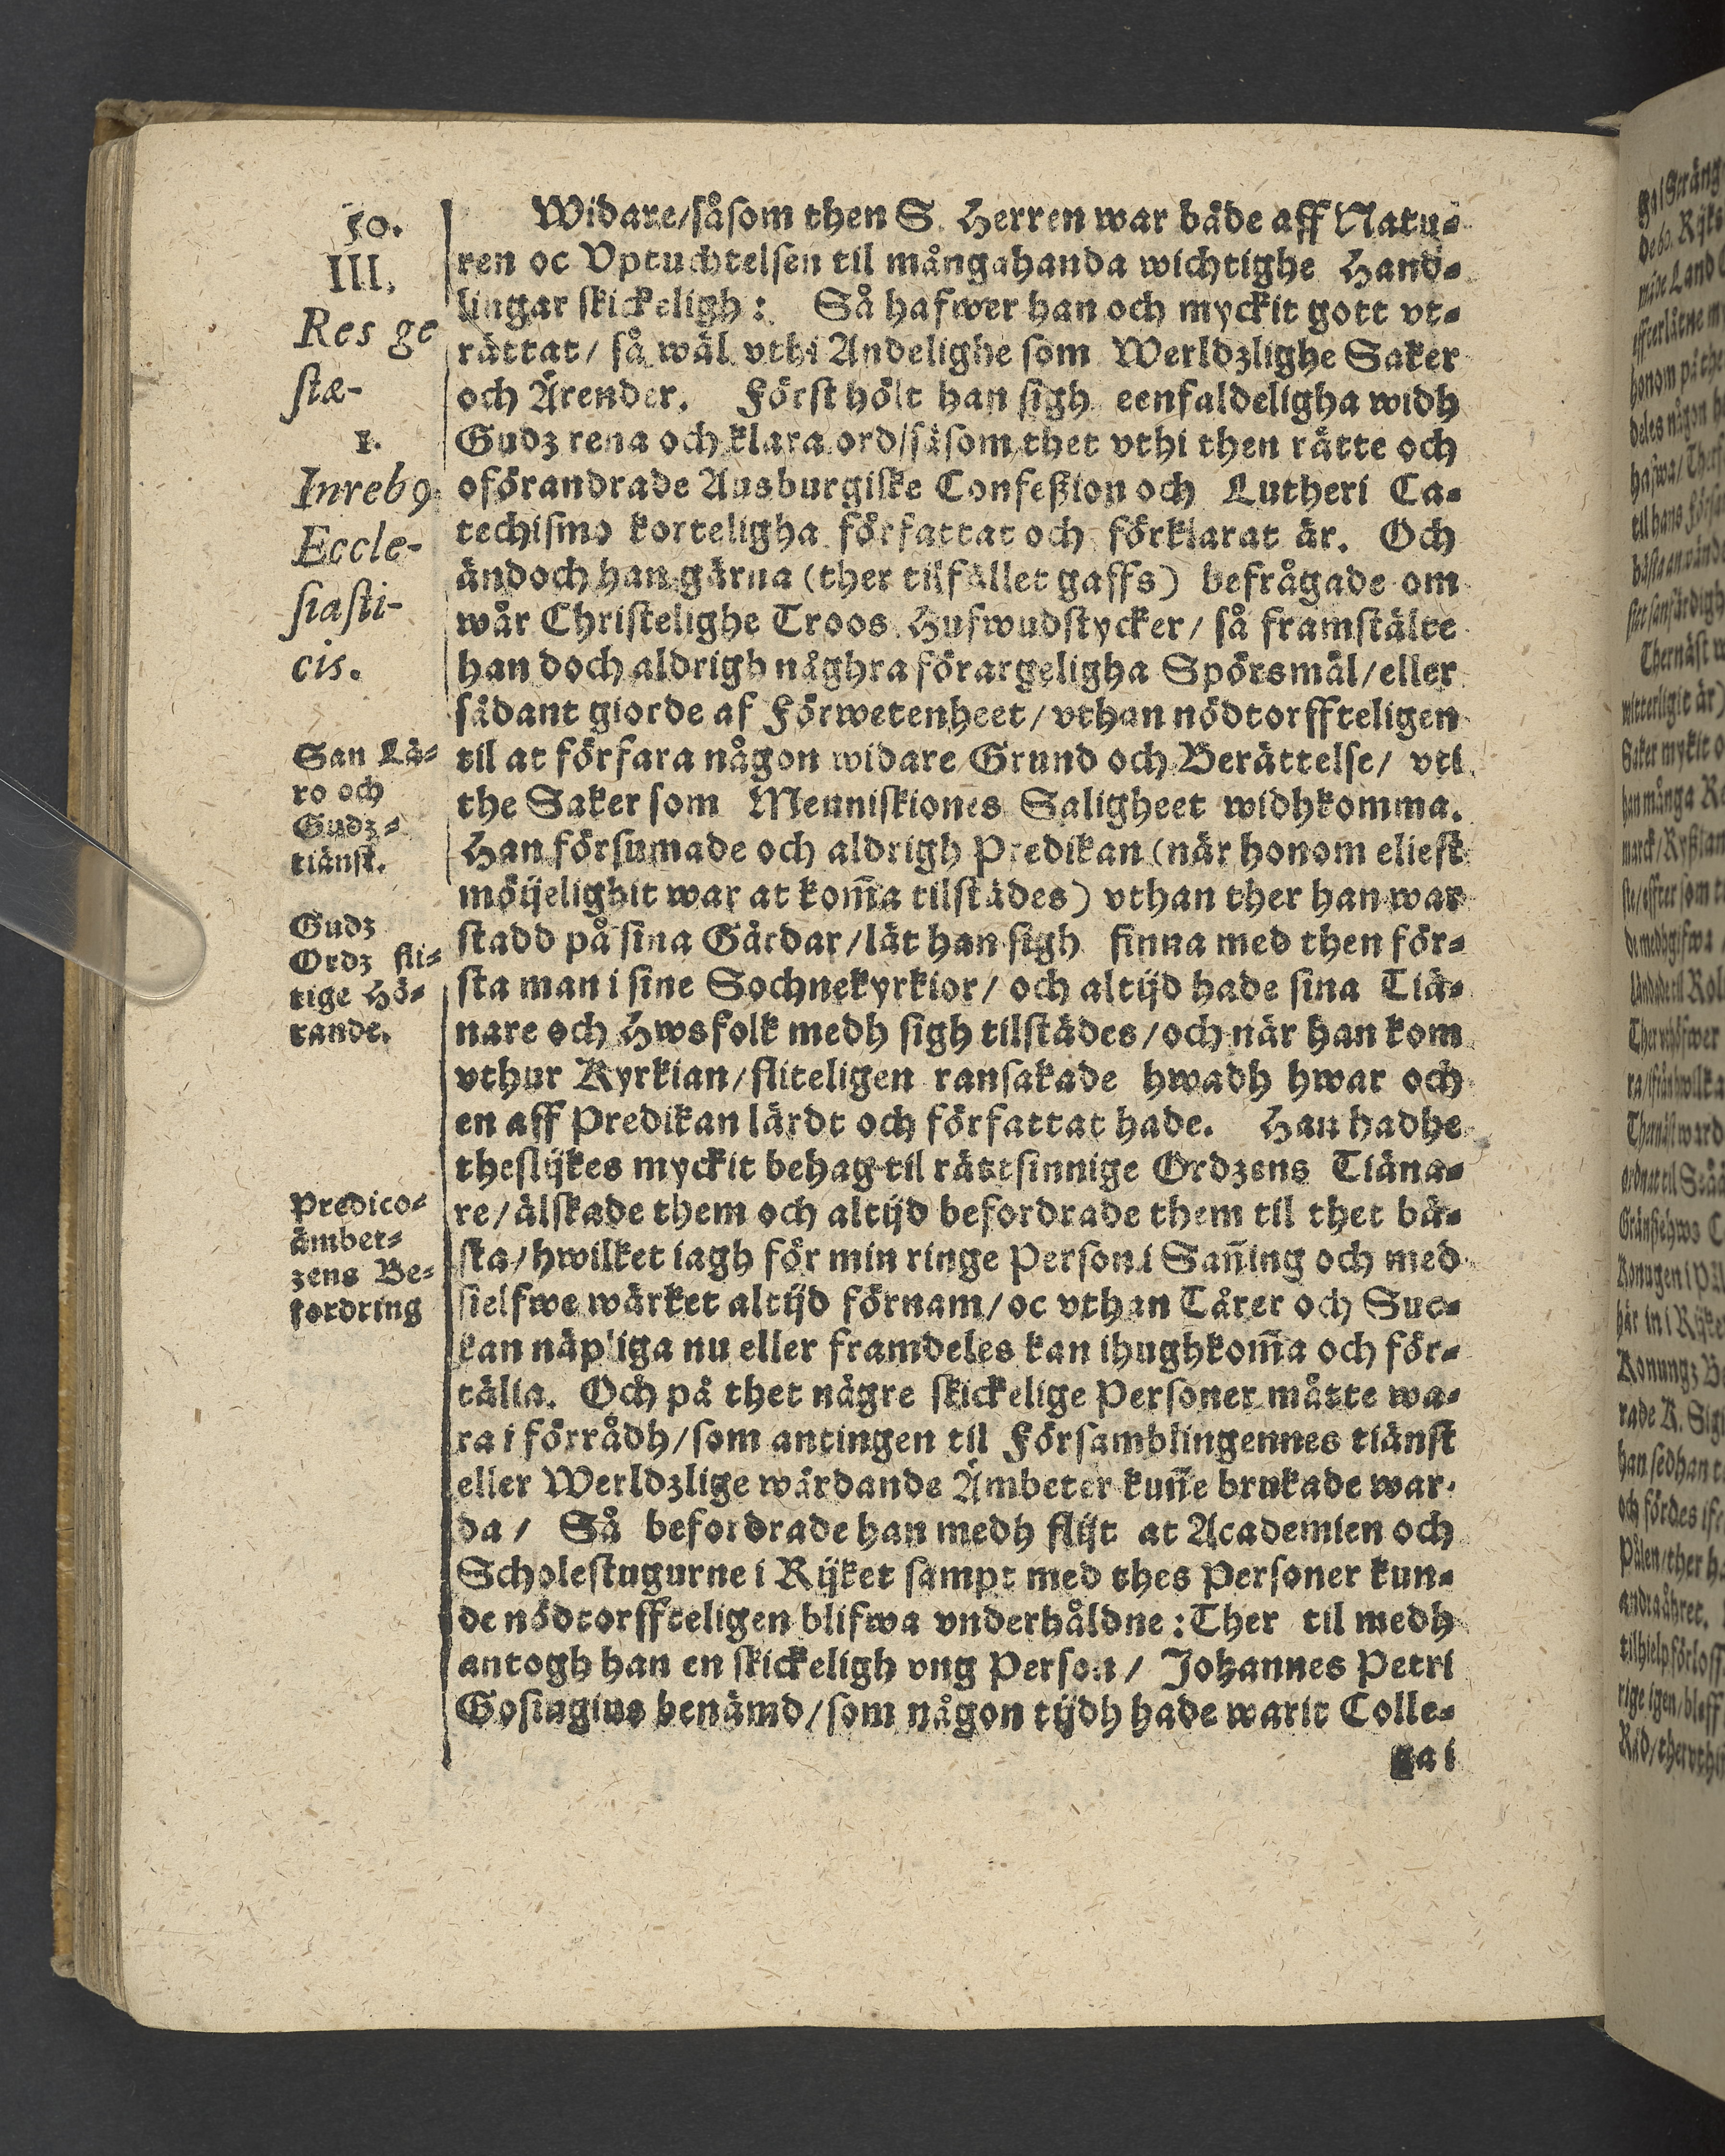 50.
III.
Res ge
stæ-
1.
Inreb9
Eccle-
siasti-
cis.
San Lä-
ro och
Gudz-
tiänst.
Gudz
Ordz fli-
tige Hö-
rande.
Predico-
ämbet-
zens Be-
fordring
Widare/såsom then S. Herren war både aff Natu-
ren oc Vptuchtelsen til mångahanda wichtighe Hand-
lingar skickeligh: Så hafwer han och myckit gott vt-
rättat/ så wäl vthi Andelighe som Werldzlighe Saker
och Ärender. Först hölt han sigh eenfaldeligha widh
Gudz rena och klara ord/såsom thet vthi then rätte och
oförandrade Ausburgiske Confeßion och Lutheri Ca-
techismo korteligha författat och förklarat är. Och
ändoch han gärna (ther tilfället gaffs) befrågade om
wår Christelighe Troos Hufwudstycker/ så framstälte
han doch aldrigh någhra förargeligha Spörsmål/eller
sådant giorde af Förwetenheet/vthan nödtorffteligen
til at förfara någon widare Grund och Berättelse/ vti
the Saker som Menniskiones Saligheet widhkomma.
Han försumade och aldrigh Predikan (när honom eliest
möijelighit war at kom̃a tilstädes) vthan ther han war
stadd på sina Gårdar/lät han sigh finna med then för-
sta man i sine Sochnekyrkior/ och altijd hade sina Tiä-
nare och Hwsfolk medh sigh tilstädes/och när han kom
vthur Kyrkian/fliteligen ransakade hwadh hwar och
en aff Predikan lärdt och författat hade. Han hadhe
theslijkes myckit behag til rättsinnige Ordzens Tiäna-
re/älskade them och altijd befordrade them til thet bä-
sta/hwilket iagh för min ringe Person i San̄ing och med
sielfwe wärket altijd förnam/oc vthan Tårer och Suc-
kan näpliga nu eller framdeles kan ihughkom̃a och för-
tälia. Och på thet någre skickelige Personer måtte wa-
ra i förrådh/som antingen til Församblingennes tiänst
eller Werldzlige wårdande Ämbeter kun̄e brukade war-
da/ Så befordrade han medh flijt at Academien och
Scholestugurne i Rijket sampt med thes Personer kun-
de nödtorffteligen blifwa vnderhåldne: Ther til medh
antogh han en skickeligh vng Person/ Johannes Petri
Gosingius benämd/som någon tijdh hade warit Colle-
ga i